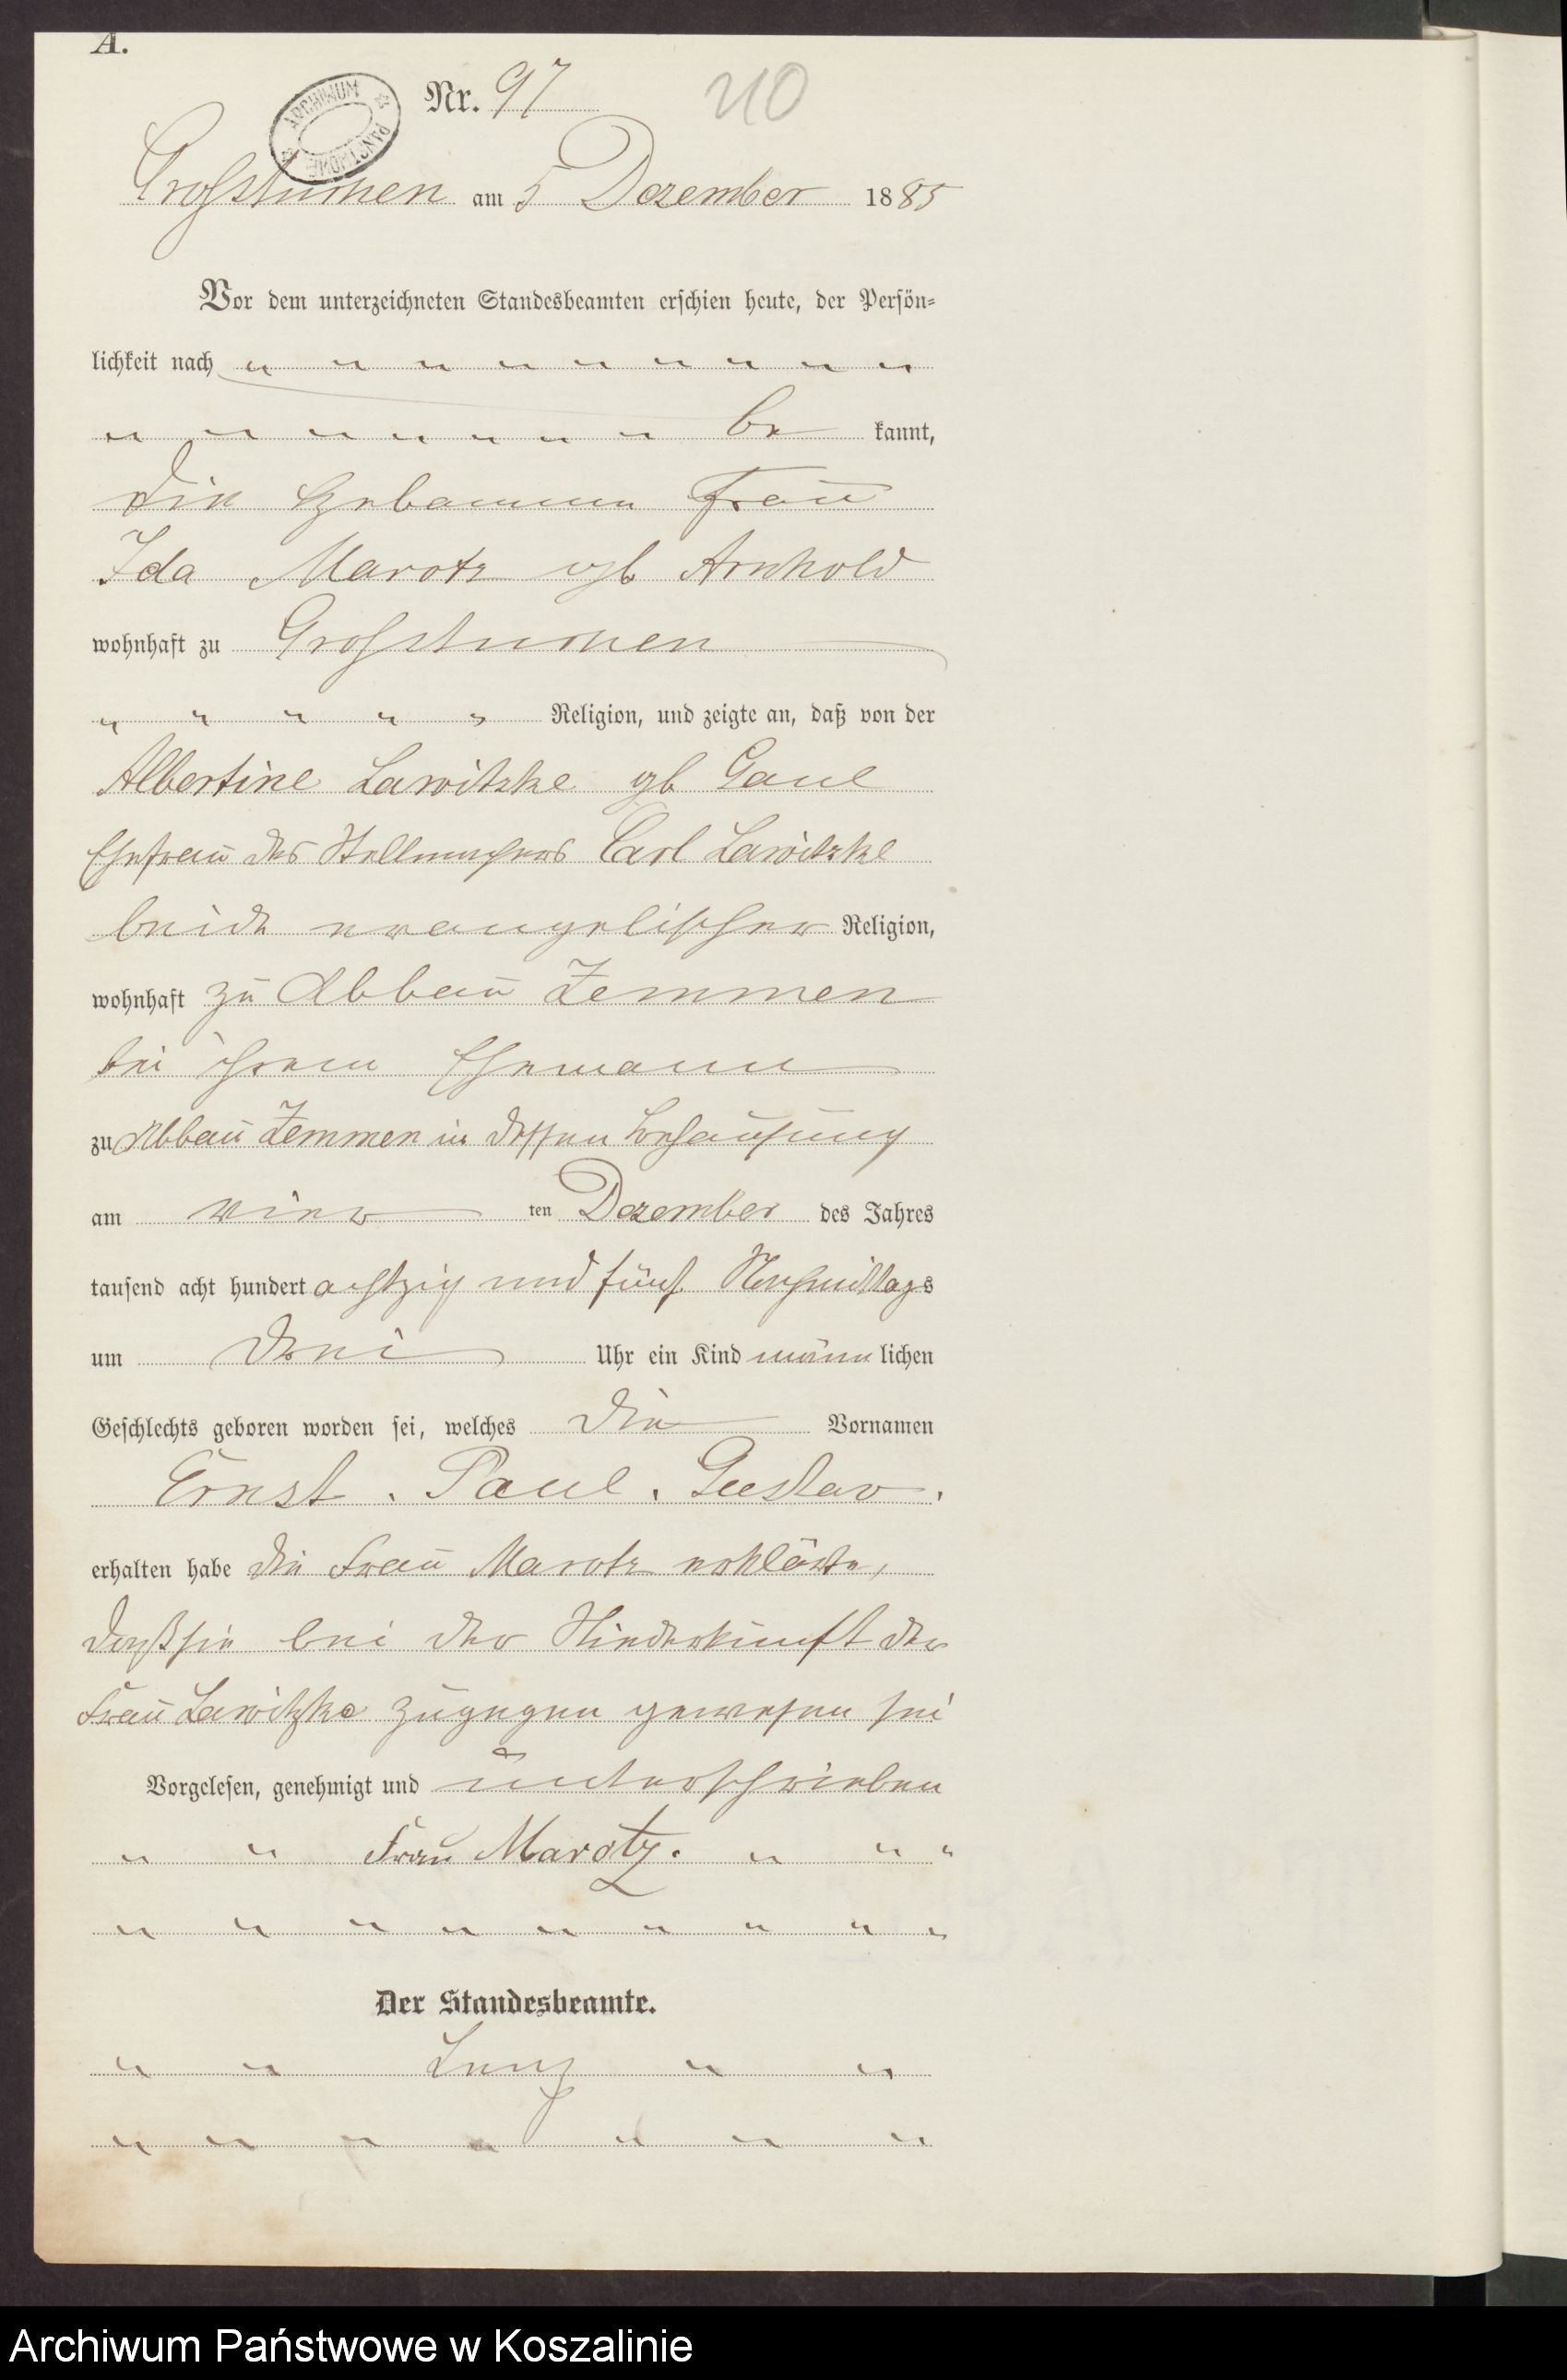 A.
ARCHIWUM PAŃSTWOWE
Nr. 97
210
Grosstuchen am 5 Dezember 1885
Vor dem unterzeichneten Standesbeamten erschien heute, der Persön-
lichkeit nach " " " " " " " " "
" " " " " " " be kannt,
die Hebamme Frau
Ida Marotz gb Arnhold
wohnhaft zu Grosstuchen
" " " " " Religion, und zeigte an, daß von der
Albertine Lawitzke gb Gaul
Ehefrau des Carl Lawitzke
beide evangelischer Religion,
wohnhaft zu Abbau Zemmen
bei ihrem Ehemann
zu Abbau Zemmen in dessen Behausung
am vier ten Dezember des Jahres
tausend acht hundert achtzig und fünf Nachmittags
um drei Uhr ein Kind männ lichen
Geschlechts geboren worden sei, welches die Vornamen
Ernst. Paul. Gustav.
erhalten habe die Frau Marotz erklärte,
daß sie bei der Niederkunft der
Frau Lawitzke zugegen gewesen sei
Vorgelesen, genehmigt und unterschrieben
" " Frau Marotz. " " "
" " " " " " " " "
Der Standesbeamte.
" " " "
" " " " " " "
Archiwum Państwowe w Koszalinie